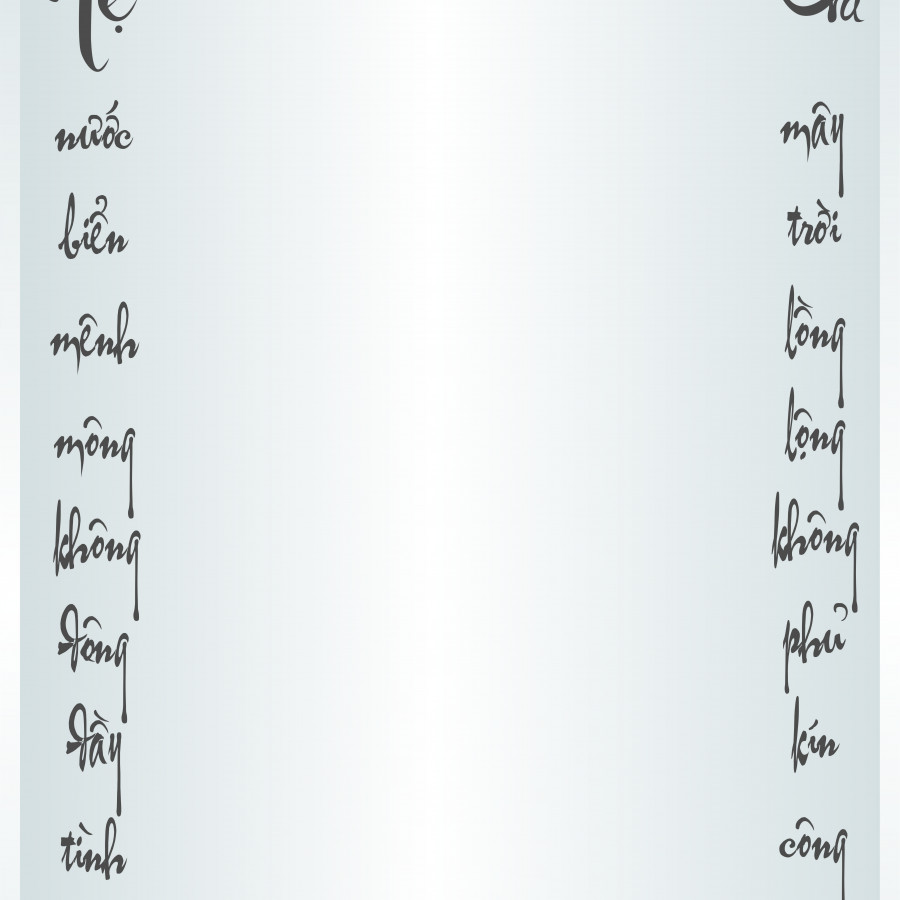 nước
biển
mênh
mông
không
đông
đầy
tình
mây
trời
lồng
lộng
không
phủ
kín
công